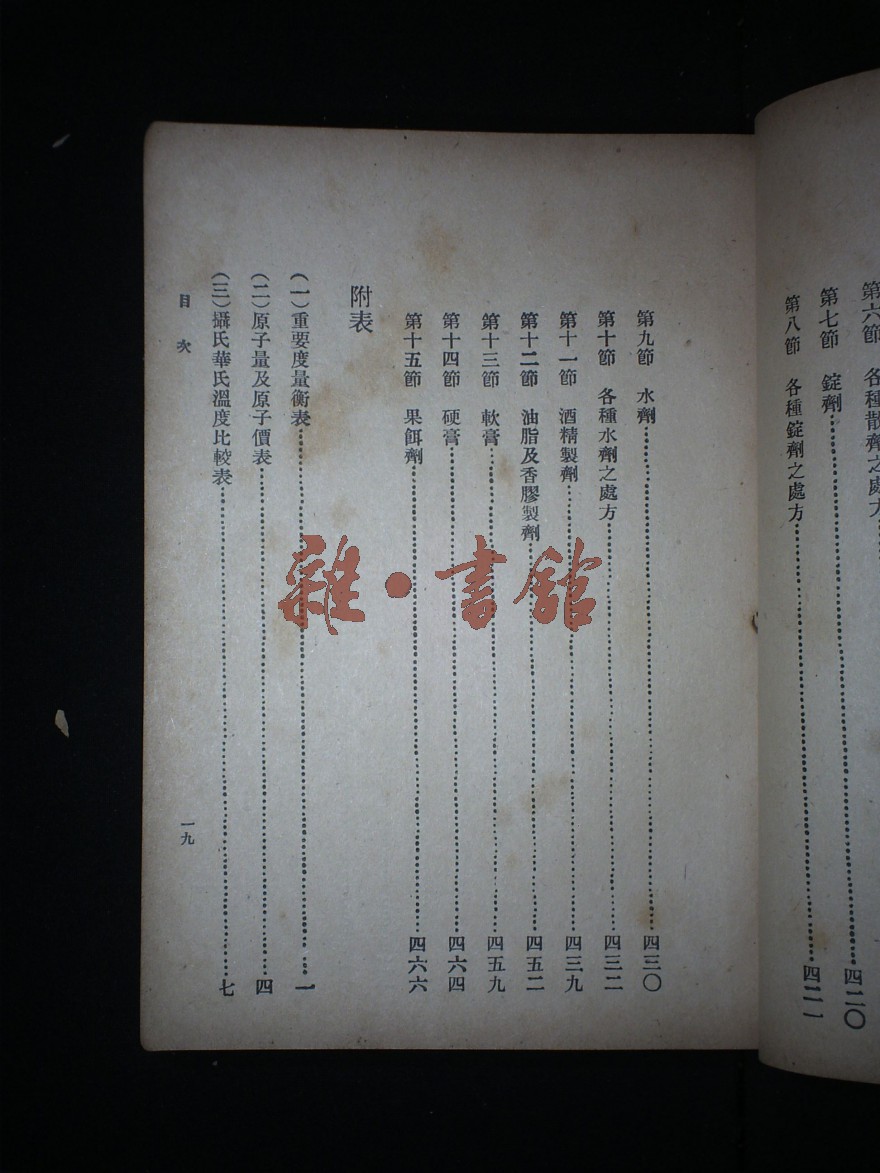 第六節 各種散劑之處方
第七節 錠劑 四二〇
第八節 各種錠劑之處方 四二一
第九節 水劑 四三〇
第十節 各種水劑之處方 四三二
第十一節 酒精製劑 四三九
第十二節 油脂及香膠製劑 四五二
第十三節 軟膏 四五九
第十四節 硬膏 四六四
第十五節 果餌劑 四六六
附表
(一)重要度量衡表 一
(二)原子量及原子價表 四
(三)攝氏華氏溫度比較表 七
目次 一九
雜·書館